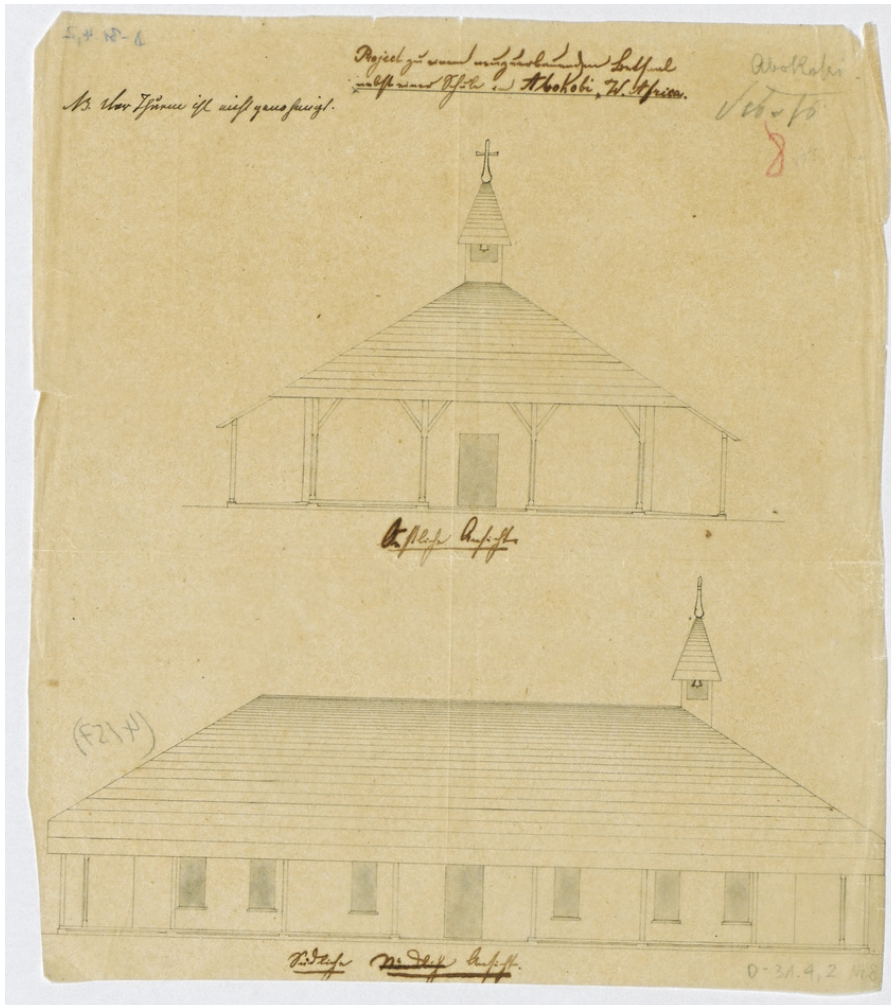 Project zu einem neuzuerbauenden Bethsaal
nebst einer Schule in Abokobi, W. Africa.
NB. Der Thurm ist nicht genehmigt.
Abokobi.
8
Östliche Ansicht.
(FZ1
Südliche Nördliche Ansicht.
D-31.4,2 № 8